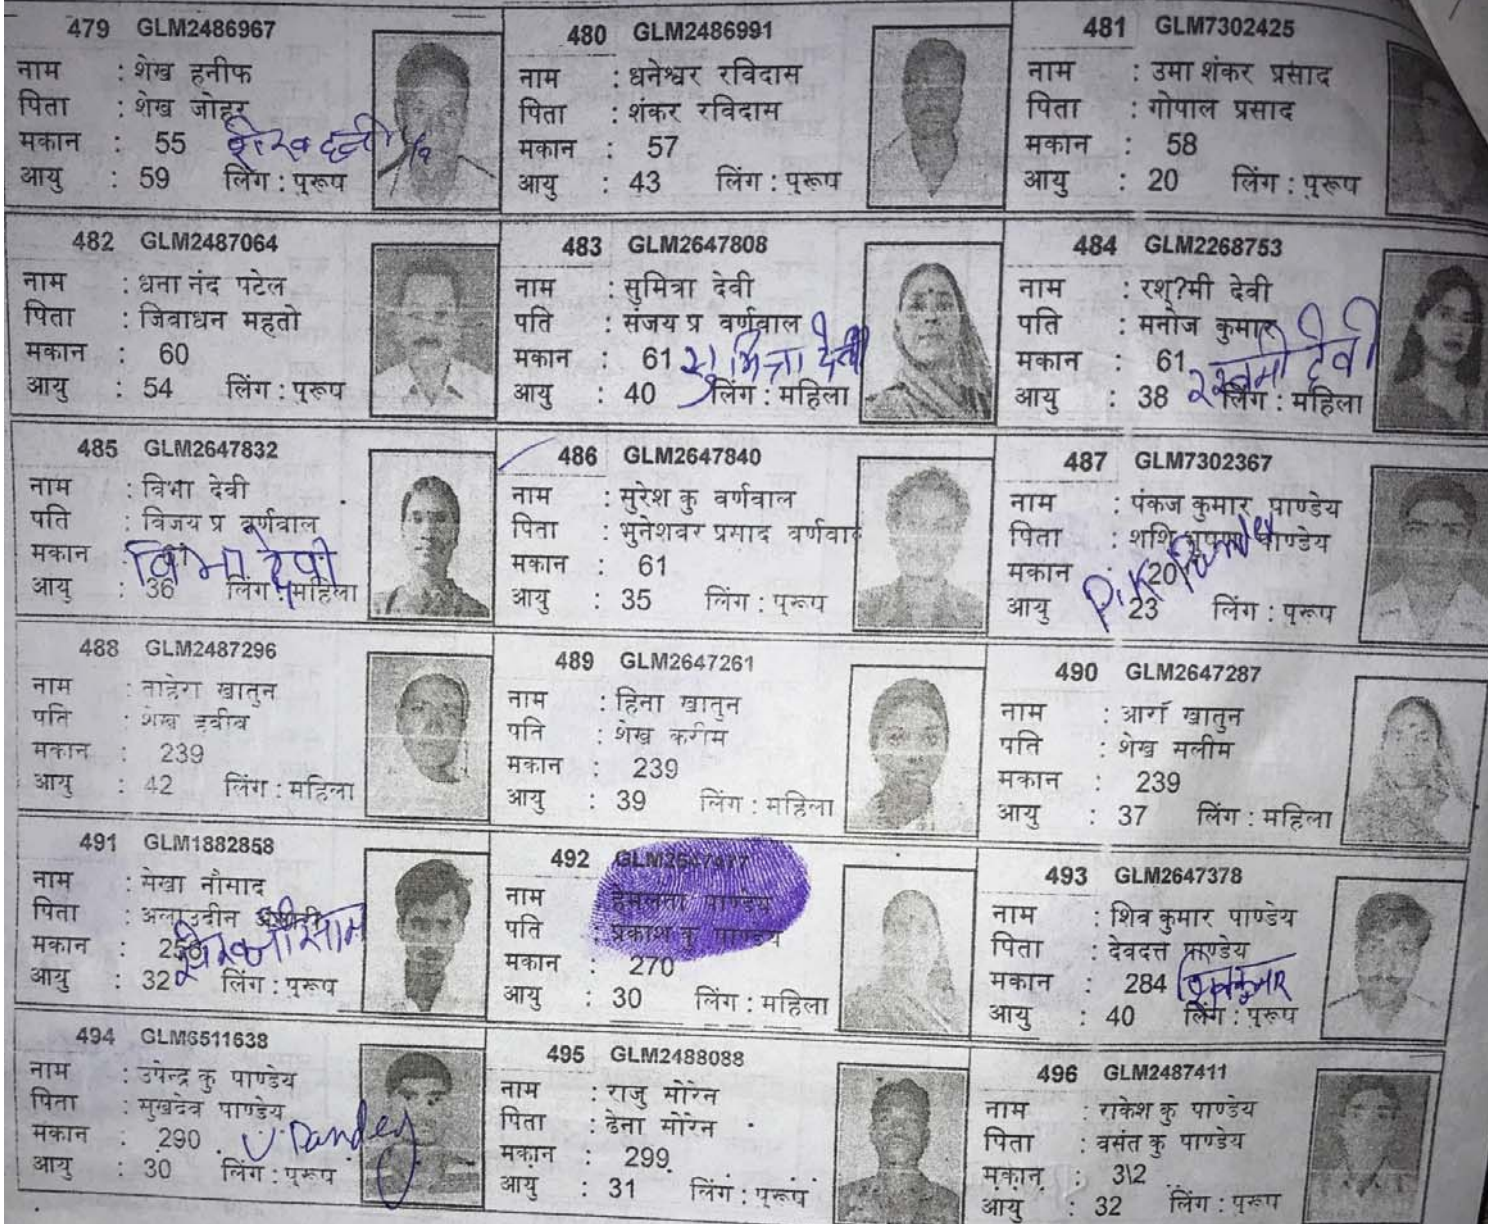 479 GLM2486967
नाम : शेख हनीफ
पिता : शेख जोहर
मकान : 55
आयु : 59 लिंग : पुरूष
480 GLM2486991
नाम : धनेश्वर रविदास
पिता : शंकर रविदास
मकान : 57
आयु : 43 लिंग : पुरूष
481 GLM7302425
नाम : उमा शंकर प्रसाद
पिता : गोपाल प्रसाद
मकान : 58
आयु : 20 लिंग : पुरूष
482 GLM2487064
नाम : धना नंद पटेल
पिता : जिवाधन महतो
मकान : 60
आयु : 54 लिंग : पुरूष
483 GLM2647808
नाम : सुमित्रा देवी
पति : संजय प्र वर्णवाल
मकान : 61 सुमित्रा देवी
आयु : 40 लिंग : महिला
484 GLM2268753
नाम : रश्?मी देवी
पति : मनोज कुमार
मकान : 61 देवी
आयु : 38 लिंग : महिला
485 GLM2647832
नाम : विभा देवी
पति : विजय प्र वर्णवाल
मकान : विभा देवी
आयु : 36 लिंग : महिला
486 GLM2647840
नाम : सुरेश कु वर्णवाल
पिता : भुनेशवर प्रसाद वर्णवाल
मकान : 61
आयु : 35 लिंग : पुरूष
487 GLM7302367
नाम : पंकज कुमार पाण्डेय
पिता : शशि भुषण पाण्डेय
मकान : 20 P.K Pandey
आयु : 23 लिंग : पुरूष
488 GLM2487296
नाम : ताहेरा खातुन
पति : शेख हवीब
मकान : 239
आयु : 42 लिंग : महिला
489 GLM2647261
नाम : हिना खातुन
पति : शेख करीम
मकान : 239
आयु : 39 लिंग : महिला
490 GLM2647287
नाम : आरॉ खातुन
पति : शेख सलीम
मकान : 239
आयु : 37 लिंग : महिला
491 GLM1882858
नाम : सेखा नौसाद
पिता : अलाउदीन
मकान :
आयु : 32 लिंग : पुरूष
492 GLM2647477
नाम : हेमलता पाण्डेय
पति : प्रकाश कु पाण्डेय
मकान : 270
आयु : 30 लिंग : महिला
493 GLM2647378
नाम : शिव कुमार पाण्डेय
पिता : देवदत्त पाण्डेय
मकान : 284
आयु : 40 लिंग : पुरूष
494 GLM6511638
नाम : उपेन्द्र कु पाण्डेय
पिता : सुखदेव पाण्डेय
मकान : 290 U Pandey
आयु : 30 लिंग : पुरूष
495 GLM2488088
नाम : राजु सोरेन
पिता : ढेना सोरेन
मकान : 299
आयु : 31 लिंग : पुरूष
496 GLM2487411
नाम : राकेश कु पाण्डेय
पिता : वसंत कु पाण्डेय
मकान : 3\2
आयु : 32 लिंग : पुरूष